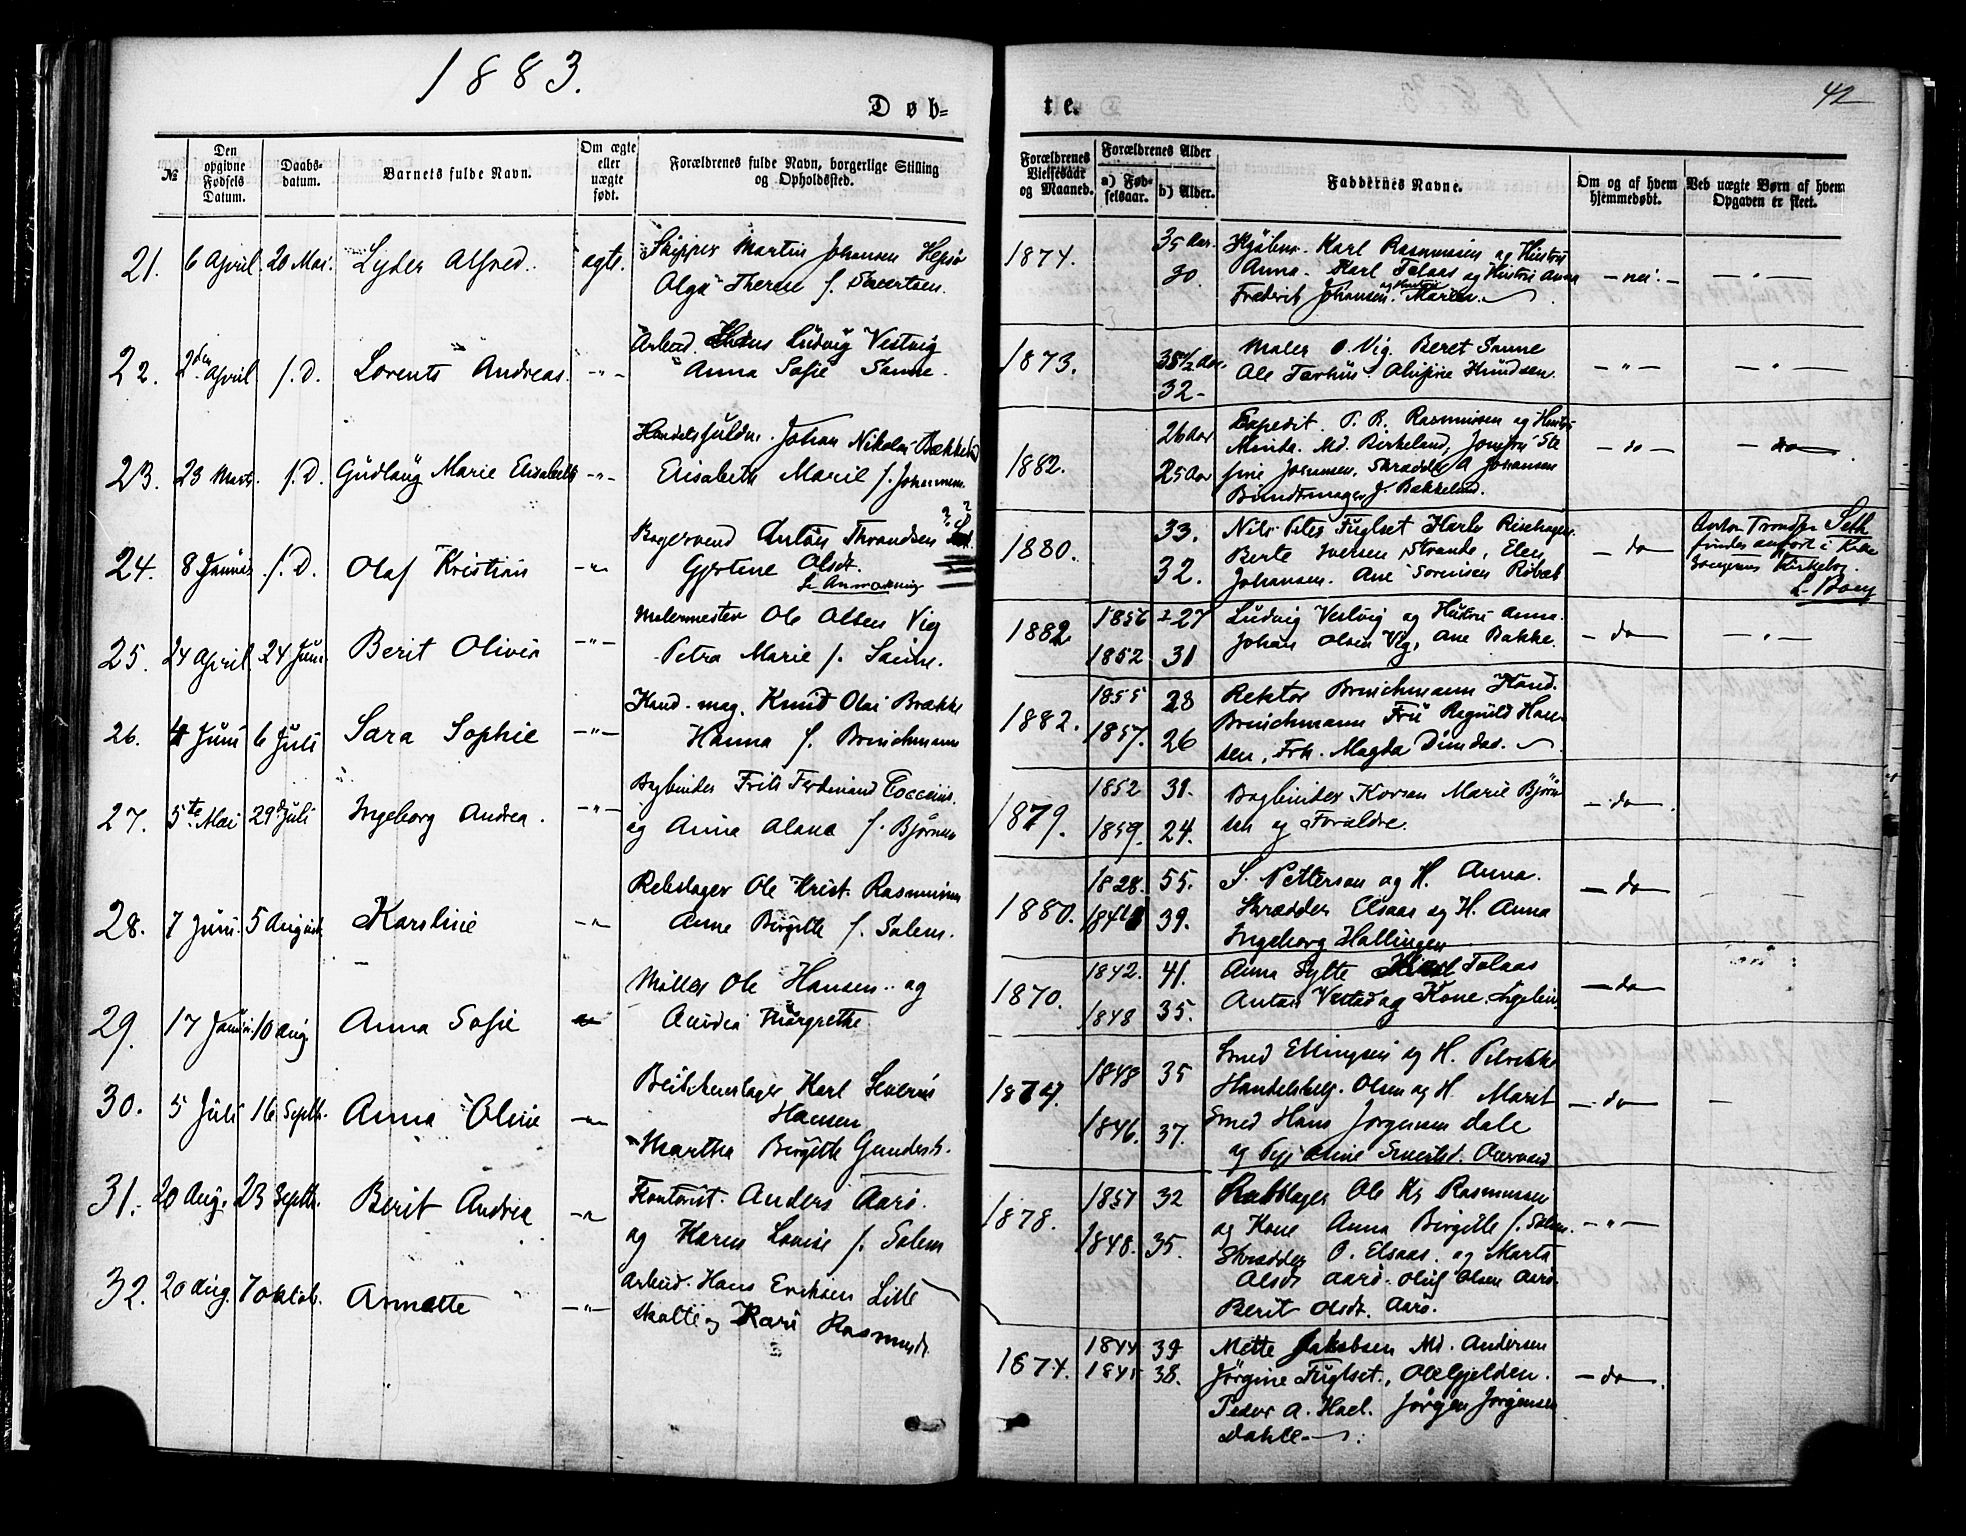 1883.
Døb-
te.
42
№
Den opgivne Fødsels Datum.
Daabs-datum.
Barnets fulde Navn.
Om ægte eller uægte født.
Forældrenes fulde Navn, borgerlige Stilling og Opholdssted.
Forældrenes Vielsesaar og Maaned.
Forældrenes Alder
a) Fød-selsaar.
b) Alder.
Faddernes Navne.
Om og af hvem hjemmedøbt.
Ved uægte Børn af hvem Opgaven er skeet.
21. 6 April. 20 Mai. Lyder Alfred. ægte. Skipper Martin Johansen
Olga Therese f.
1874. 35 Aar. Karl Rasmussen og Hustru
30. Anna. Karl Talaas og Hustru Anna
Frederik Johansen. og Hustru Maren.
- nei. - - " -
22. 2den April s. D. Lorents Andreas. - " - Arbeid. Hans Ludvig Vestvig
Anna Sofie Sanne.
1873. 35½ Aar. Maler O. Vig. Beret Sanne
32 - Ole
- " - - " -
23. 23 Marts. s. D. Gudlaug Marie Elisabeth - " - Johan Nikolai Bækkelund
Elisabeth Marie f. Johannesen.
1882. 26 Aar Expedit. P. R. Rasmussen og Hustru
Minda. Md. Birkeland, Jomfru
25 Aar Skrædder A Johansen
Bundtmager J. Bækkelund.
- do - - do -
24. 8 Januar s. D. Olaf Kristian - " - Anton Throndsen
Gjertine Olsdt.
Se Anmærkning
1880. 33. Nils Peter Fuglset
32. Berte Iversen Strande, Elen
Johansen. Ane Sørensen Røbæk
- do - Anton Trondsen Seth
findes anført i
Kirkebog.
25. 24 April 24 Juni Berit Olivia - " - Malermester Ole Olsen Vig
Petra Marie f. Sanne.
1882. 1856 27 Ludvig Vestvig og Hustru Anna.
1852 31 Johan Olsen Vig, Ane Bakke.
- do - - " -
26. 4 Juni 6 Juli Sara Sophie - " - Kand. mag. Knud Olai Brække
Hanna f. Brinchmann
1882. 1855 28 Rektor Brinchmann Kand.
1857. 26 Brinchmann Frü Ragnild Han-
sen, Frk. Magda
27. 5te Mai 29 Juli Ingeborg Andrea. - " - Bogbinder Frits Ferdinand Cocceius.
og Anna Olava f. Bjørnsen
1879. 1852 31. Bogbinder Marie Bjørn-
1859. 24. sen og Forældre.
- do -
28. 7 Juni. 5 August Karoline - " - Rebslager Ole Krist. Rasmussen
Anne Birgitte f. Salem.
1880. 1828. 55. S. Petterson og H. Anna.
39. Skrædder Elsaas og H. Anna
Ingeborg Hallingen
- do -
29. 17 Januar. 10 Aug. Anna Sofie Møller Ole Hansen og
Andrea Margrethe.
1870. 1842. 41. Anna Sylte Karl Talaas
1848 35. Anton Vestad og Kone.
- do -
30. 5 Juli 16 Septb. Anna Oline - " - Karl Severin
Hansen
Martha Birgitte Gundersd.
1874. 1848 35 Smed Ellingsen og H.
Olsen og H. Marit
1846. 37. Smed Hans Jørgensen Dale
- do - -
31. 20 Aug. 23 Septb. Berit Andrea - " - Kontorist. Anders Aarø.
og Karen Lovise f. Salem
1878. 1851 32 Rebslager Ole Kr Rasmussen
og Kone Anna Birgitte f. Salem.
1848. 35. Skrædder O. Elsaas. og Marta
Olsdt Aarø. Oluf Olsen Aarø.
Berit Olsdt. Aarø.
- " -
32. 20 Aug. 7 Oktob. Annette - " - Arbeid. Hans Eriksen Lille
Skalte og Kari Rasmusdt.
1874. 1844 39 Mette Jakobsen Md. Andersen
1845 38. Jørgine Fuglset., Ole Gjelden.
Peder A. Hoel. Jørgen Jørgensen
Dahle.
- do -